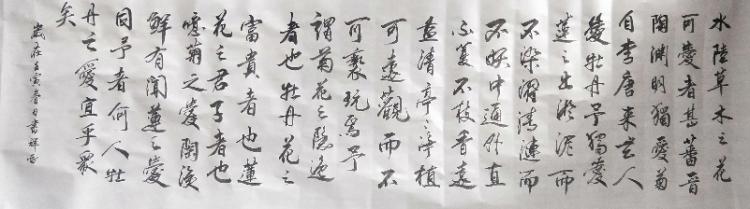 水陸草木之花
可愛者甚蕃晉
陶淵明獨愛菊
自李唐来世人
愛牡丹予獨愛
蓮之出淤泥而
不染濯清漣而
不妖中通外直
不蔓不枝香遠
益清亭亭植
可遠觀而不
可褻玩焉予
謂菊花之隱逸
者也牡丹花之
富貴者也蓮
花之君子者也
噫菊之愛陶後
鮮有聞蓮之愛
同予者何人牡
丹之愛宜乎眾
矣
歲在壬寅春日書祥